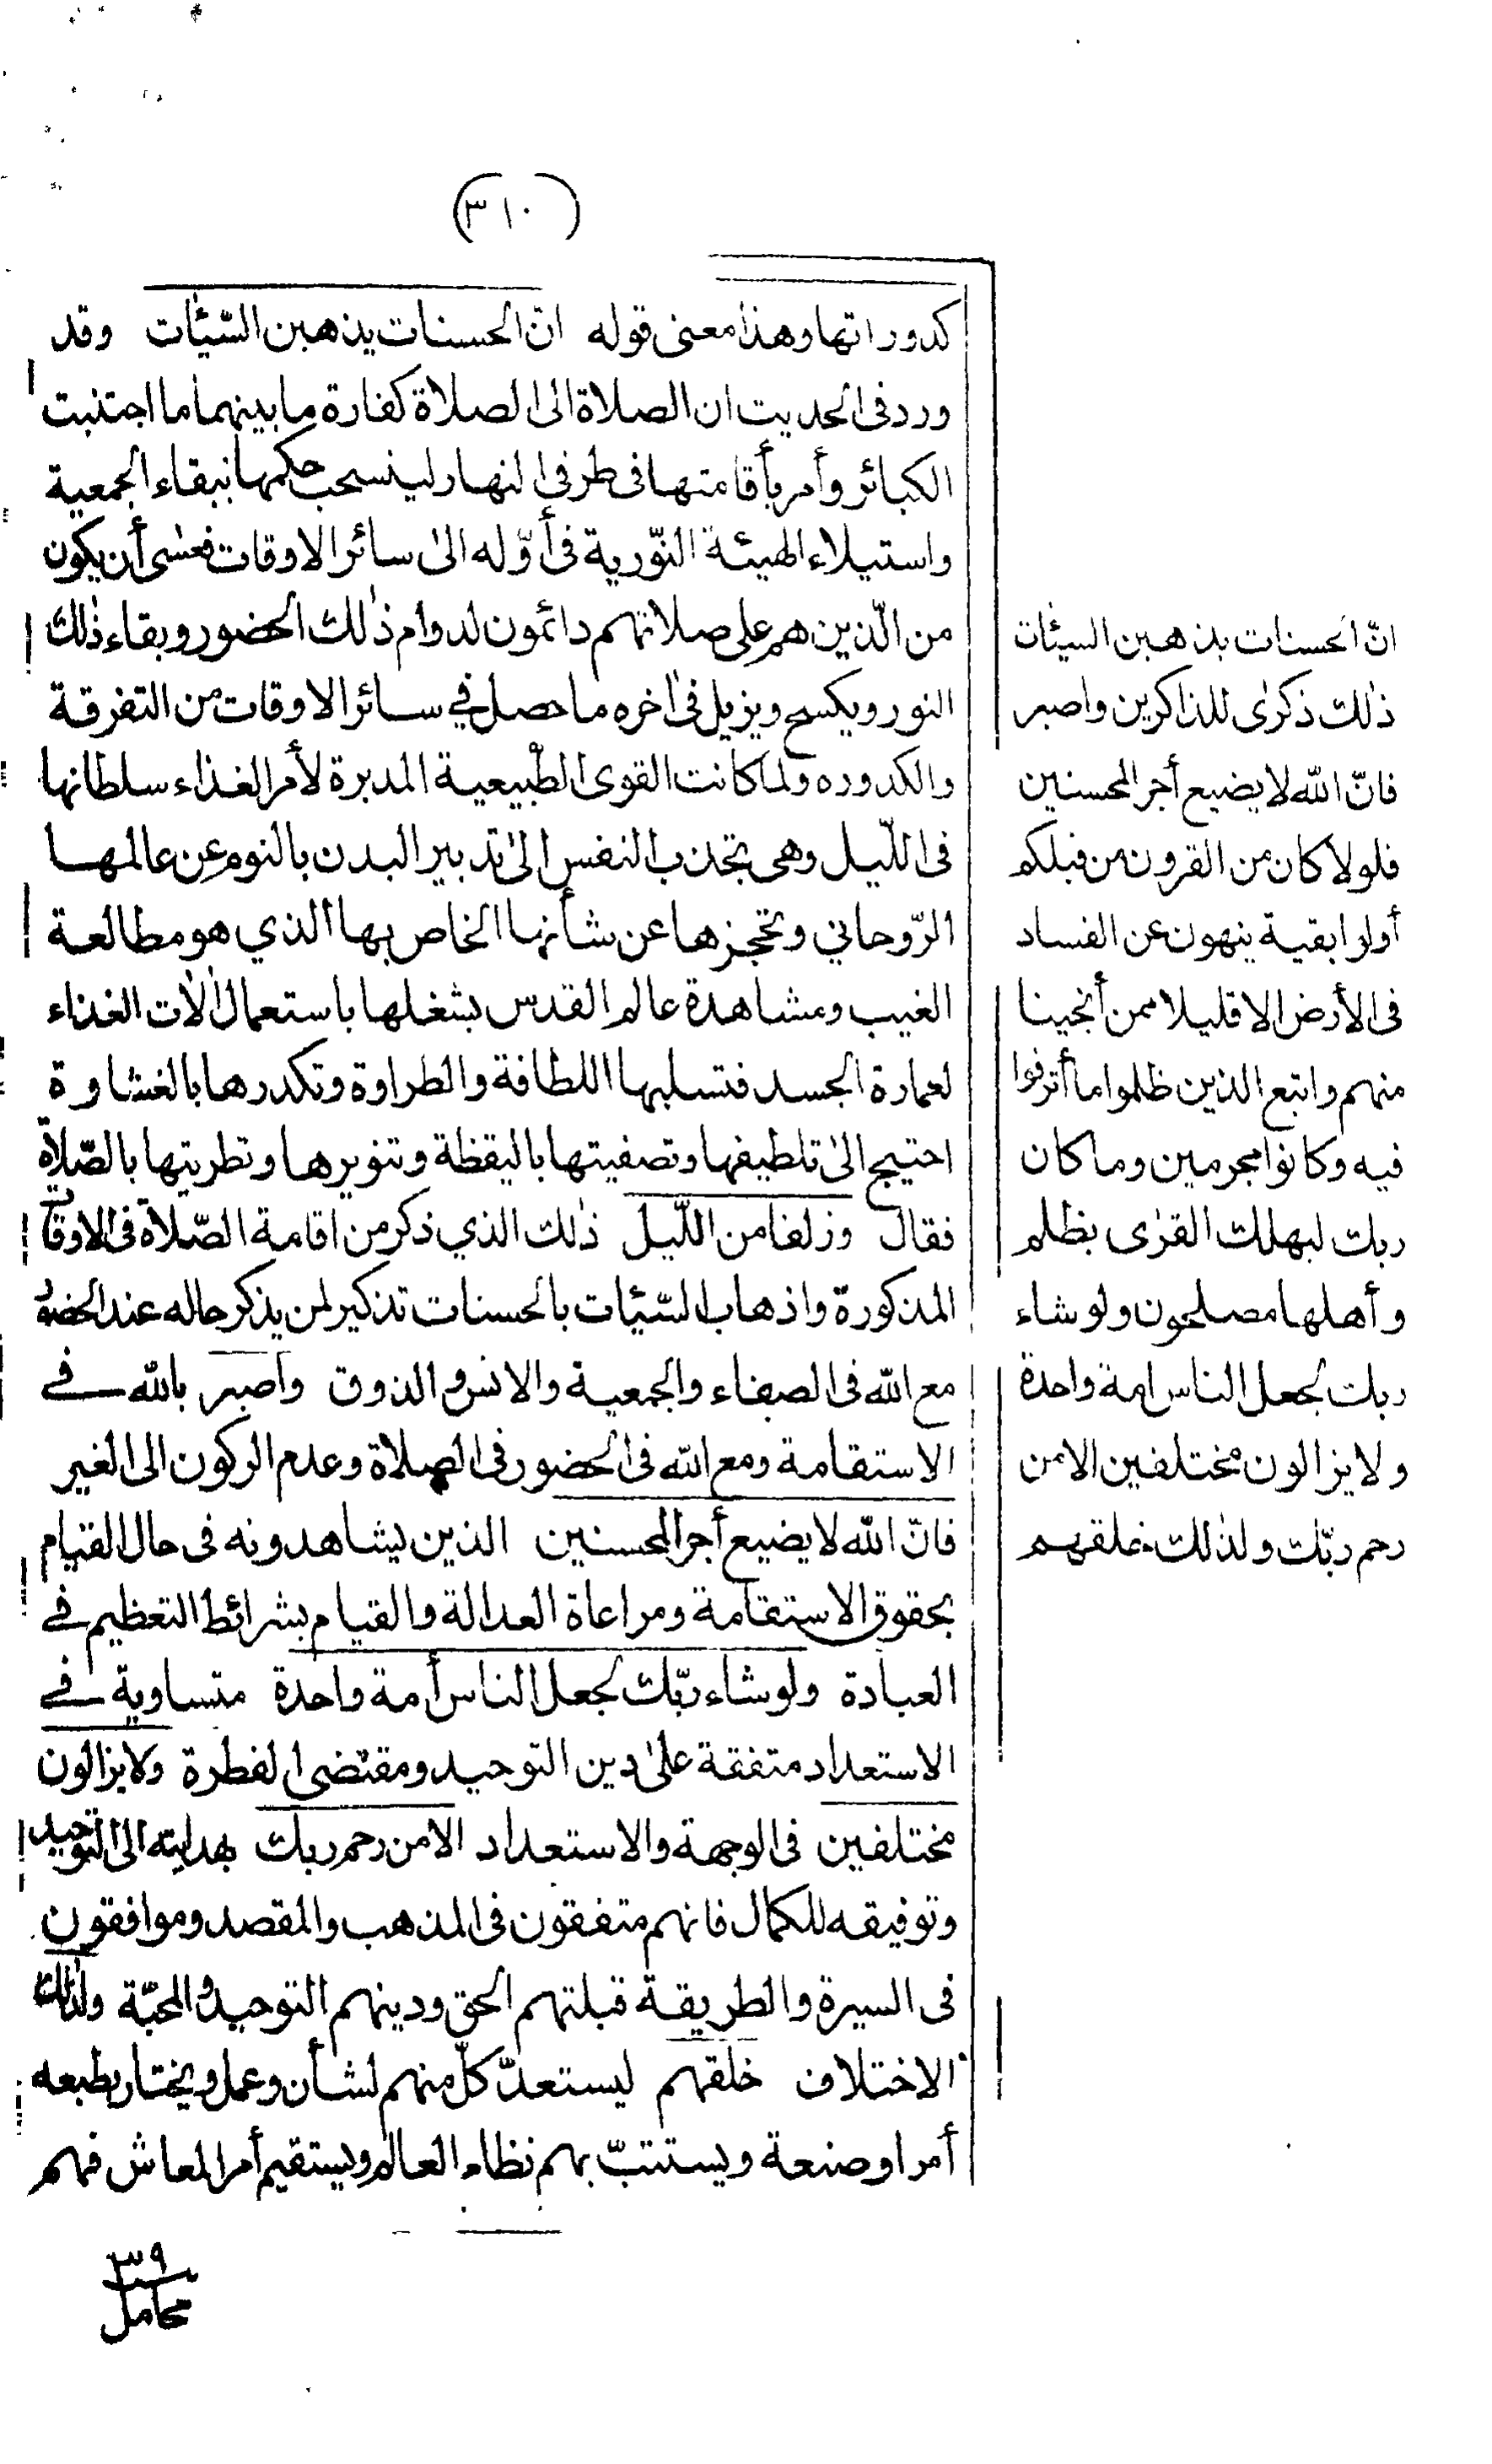 (٣١٠)
كدوراتها وهذا معنى قوله انّ الحسنات يذهبن السّيّٰات وقد
ورد فى الحديث ان الصلاة الى الصلاة كفارة ما بينهما ما اجتنبت
الكبائر وأمر بأقامتها فى طرفى النهار لينسحب حكمها ببقاء الجمعية
واستيلاء الهيئة النّورية فى أوّله الى سائر الاوقات فعسى أن يكون
من الّذين هم على صلاتهم دائمون لدوام ذٰلك الحضور وبقاء ذٰلك
النور ويكسح ويزيل فى اٰخره ما حصل في سائر الاوقات من التفرقة
والكدوره ولما كانت القوى الطّبيعية المدبرة لأمر الغذاء سلطانها
فى اللّيل وهى تجذب النفس الى تدبير البدن بالنوم عن عالمها
الرّوحاني وتحجزها عن شأنها الخاص بها الذي هو مطالعة
الغيب ومشاهدة عالم القدس بشغلها باستعمال اٰلات الغذاء
لعمارة الجسد فتسلبها اللطافة والطراوة وتكدرها بالغشاوة
احتيج الى تلطيفها وتصفيتها باليقظة وتنويرها وتطريتها بالصّلاة
فقال وزلفا من اللّيل ذٰلك الذي ذكر من اقامة الصّلاة فى الاوقات
المذكورة واذهاب السّيّئات بالحسنات تذكير لمن يذكر حاله عند الحضور
مع الله فى الصفاء والجمعية والانس والذوق واصبر بالله فے
الاستقامة ومع الله فى الحضور فى الصلاة وعدم الركون الى الغير
فانّ الله لا يضيع أجر المحسنين الذين يشاهدونه فى حال القيام
بحقوق الاستقامة ومراعاة العدالة والقيام بشرائط التعظيم فے
العبادة ولو شاء ربّك لجعل الناس أمة واحدة متساوية فے
الاستعداد متفقة على دين التوحيد ومقتضى الفطرة ولا يزالون
مختلفين فى الوجهة والاستعداد الا من رحم ربك بهدايته الى التوحيد
وتوفيقه للكمال فانهم متفقون فى المذهب والمقصد وموافقون
فى السيرة والطريقة قبلتهم الحق ودينهم التوحيد والمحبّة ولذٰلك
الاختلاف خلقهم ليستعدّ كلّ منهم لشأن وعمل ويختار بطبعه
أمرا وصنعة ويستتبّ بهم نظام العالم ويستقيم أمر المعاش فهم
انّ الحسنات يذهبن السيّٰات
ذٰلك ذكرٰى للذاكرين واصبر
فانّ الله لا يضيع أجر المحسنين
فلولا كان من القرون من قبلكم
أولوا بقية ينهون عن الفساد
فى الأرض الا قليلا ممن أنجينا
منهم واتبع الذين ظلموا ما أترفوا
فيه وكانوا مجرمين وما كان
ربك ليهلك القرٰى بظلم
وأهلها مصلحون ولو شاء
ربك لجعل الناس امة واحدة
ولا يزالون مختلفين الا من
رحم ربّك ولذٰلك خلقهم
٣٩
محامل